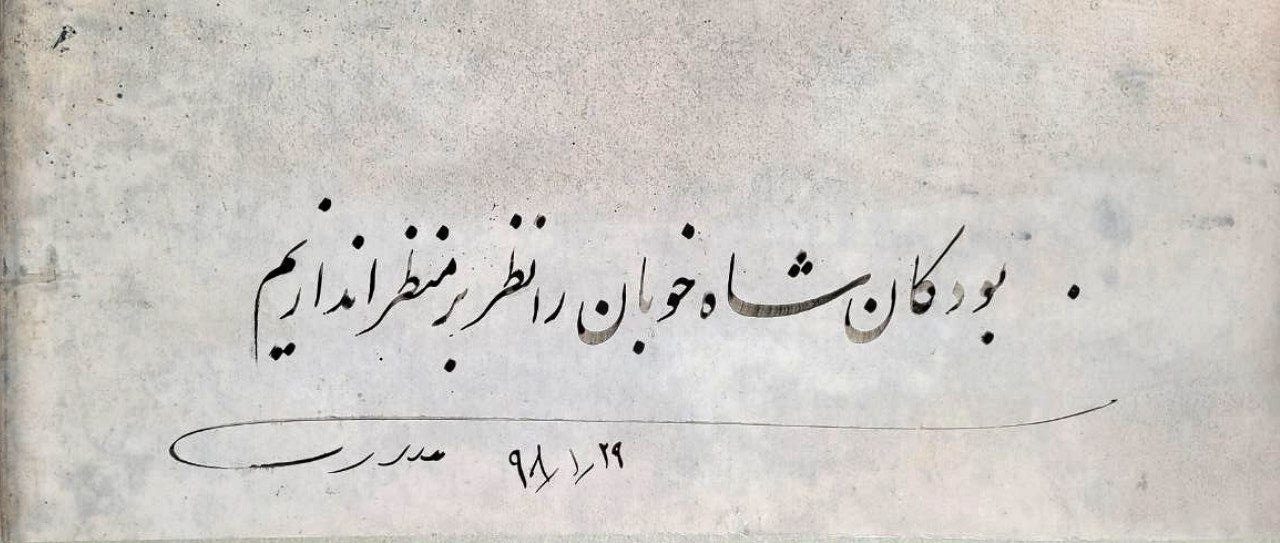 بود کان شاه خوبان را نظر بر منظر اندازیم
۹۸/۱/۲۹